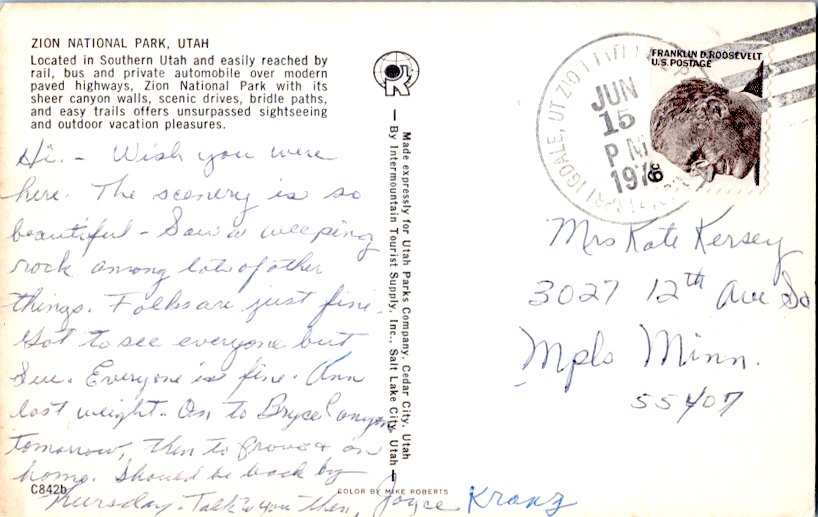 ZION NATIONAL PARK, UTAH
Located in Southern Utah and easily reached by
rail, bus and private automobile over modern
paved highways, Zion National Park with its
sheer canyon walls, scenic drives, bridle paths,
and easy trails offers unsurpassed sightseeing
and outdoor vacation pleasures.
Hi. - Wish you were
here. The scenery is so
beautiful - Saw a weeping
rock among lots of other
things. Folks are just fine.
Got to see everyone but
Sue. Everyone is fine. Ann
lost weight. On to Bryce Canyon
tomorrow, then to Provo & on
home. Should be back by
Thursday. Talk to you then, Joyce Kranz
C842b
COLOR BY MIKE ROBERTS
Made expressly for Utah Parks Company, Cedar City, Utah
— By Intermountain Tourist Supply, Inc., Salt Lake City, Utah —
JUN
15
PM
FRANKLIN D. ROOSEVELT
U.S. POSTAGE
6c
Mrs Kate Kersey
3027 12th Ave So
Mpls Minn.
55407